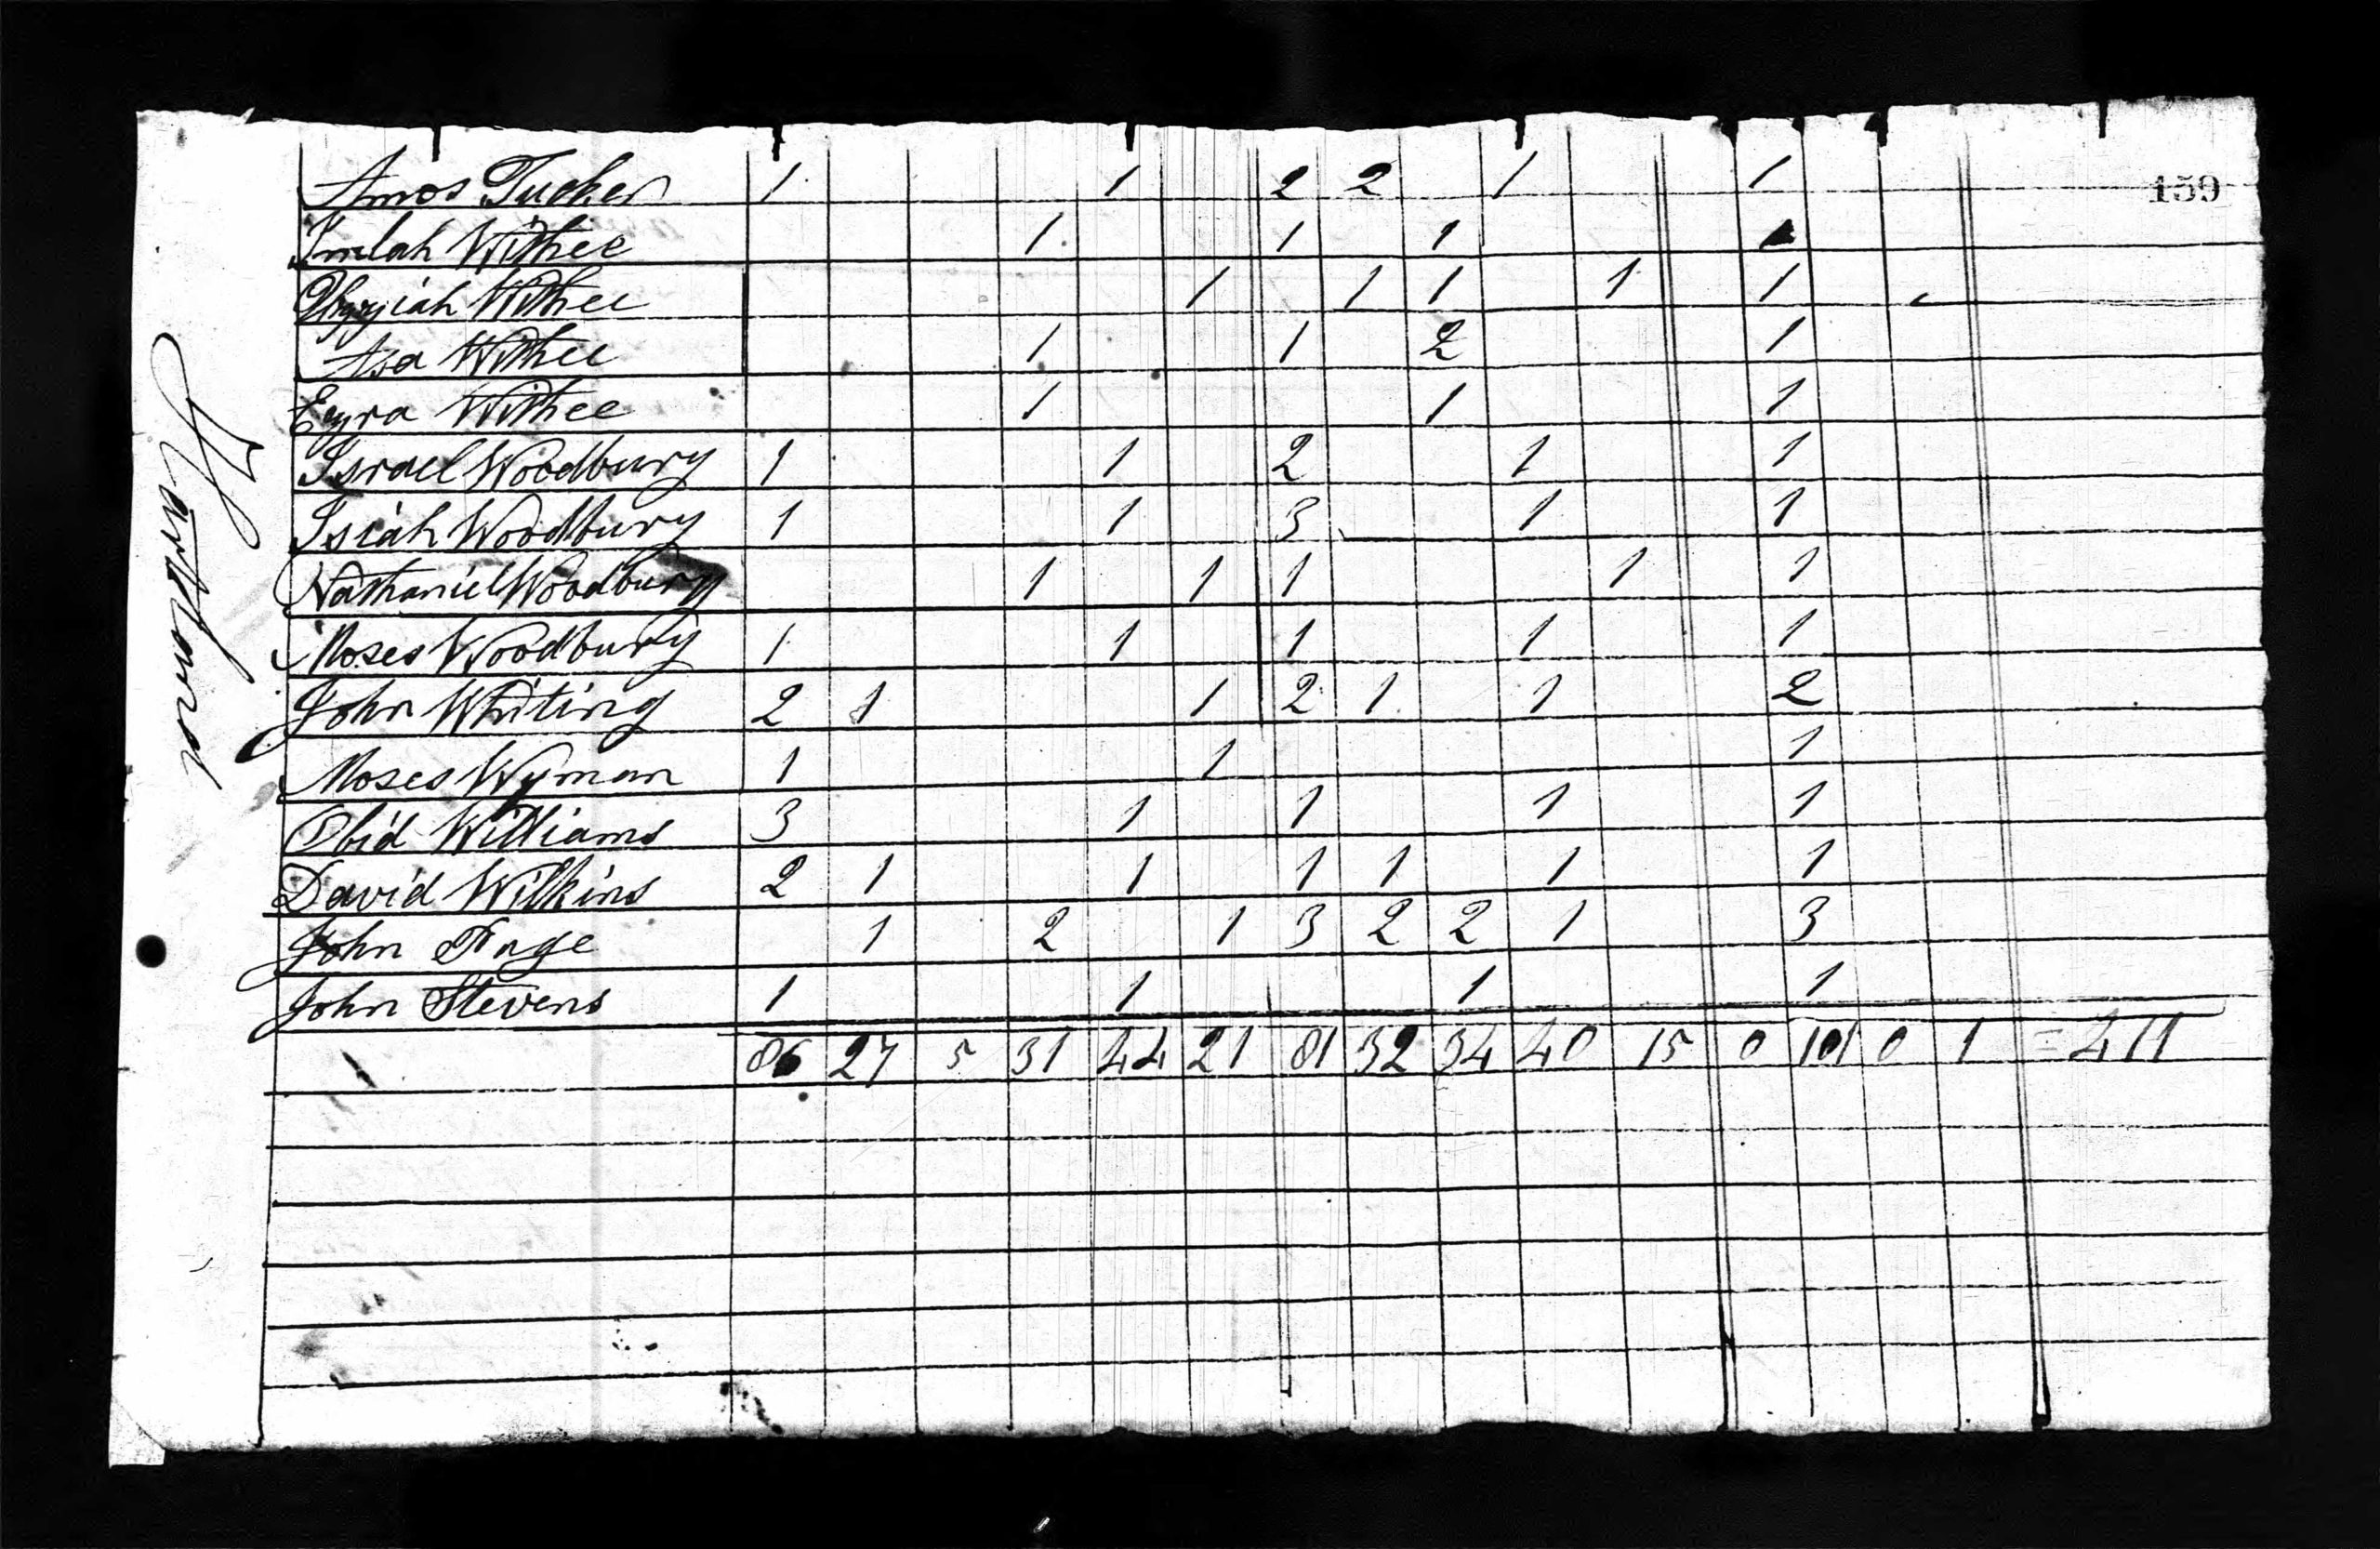 159
Norton
Amos Tucker 1 1 2 2 1 1
Imlah Withee 1 1 1 1
Uzziah Withee 1 1 1 1 1
Asa Withee 1 1 2 1
Ezra Withee 1 1 1
Israel Woodbury 1 1 2 1 1
Isiah Woodbury 1 1 3 1 1
Nathaniel Woodbury 1 1 1 1 1
Moses Woodbury 1 1 1 1 1
John Whiting 2 1 1 2 1 1 2
Moses Wyman 1 1 1
Obid Williams 3 1 1 1 1
David Wilkins 2 1 1 1 1 1 1
John Page 1 2 1 3 2 2 1 3
John Stevens 1 1 1 1
86 27 5 31 44 21 81 32 34 40 15 0 101 0 1 = 411